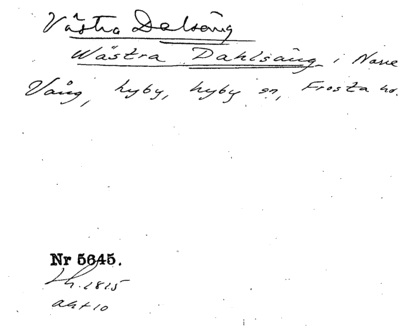 Västra Dalsäng
Wästra Dahlsäng i Norre
Vång, hyby, hyby sn, Frosta hd.
Nr 5645.
Lh. 1815
akt 10